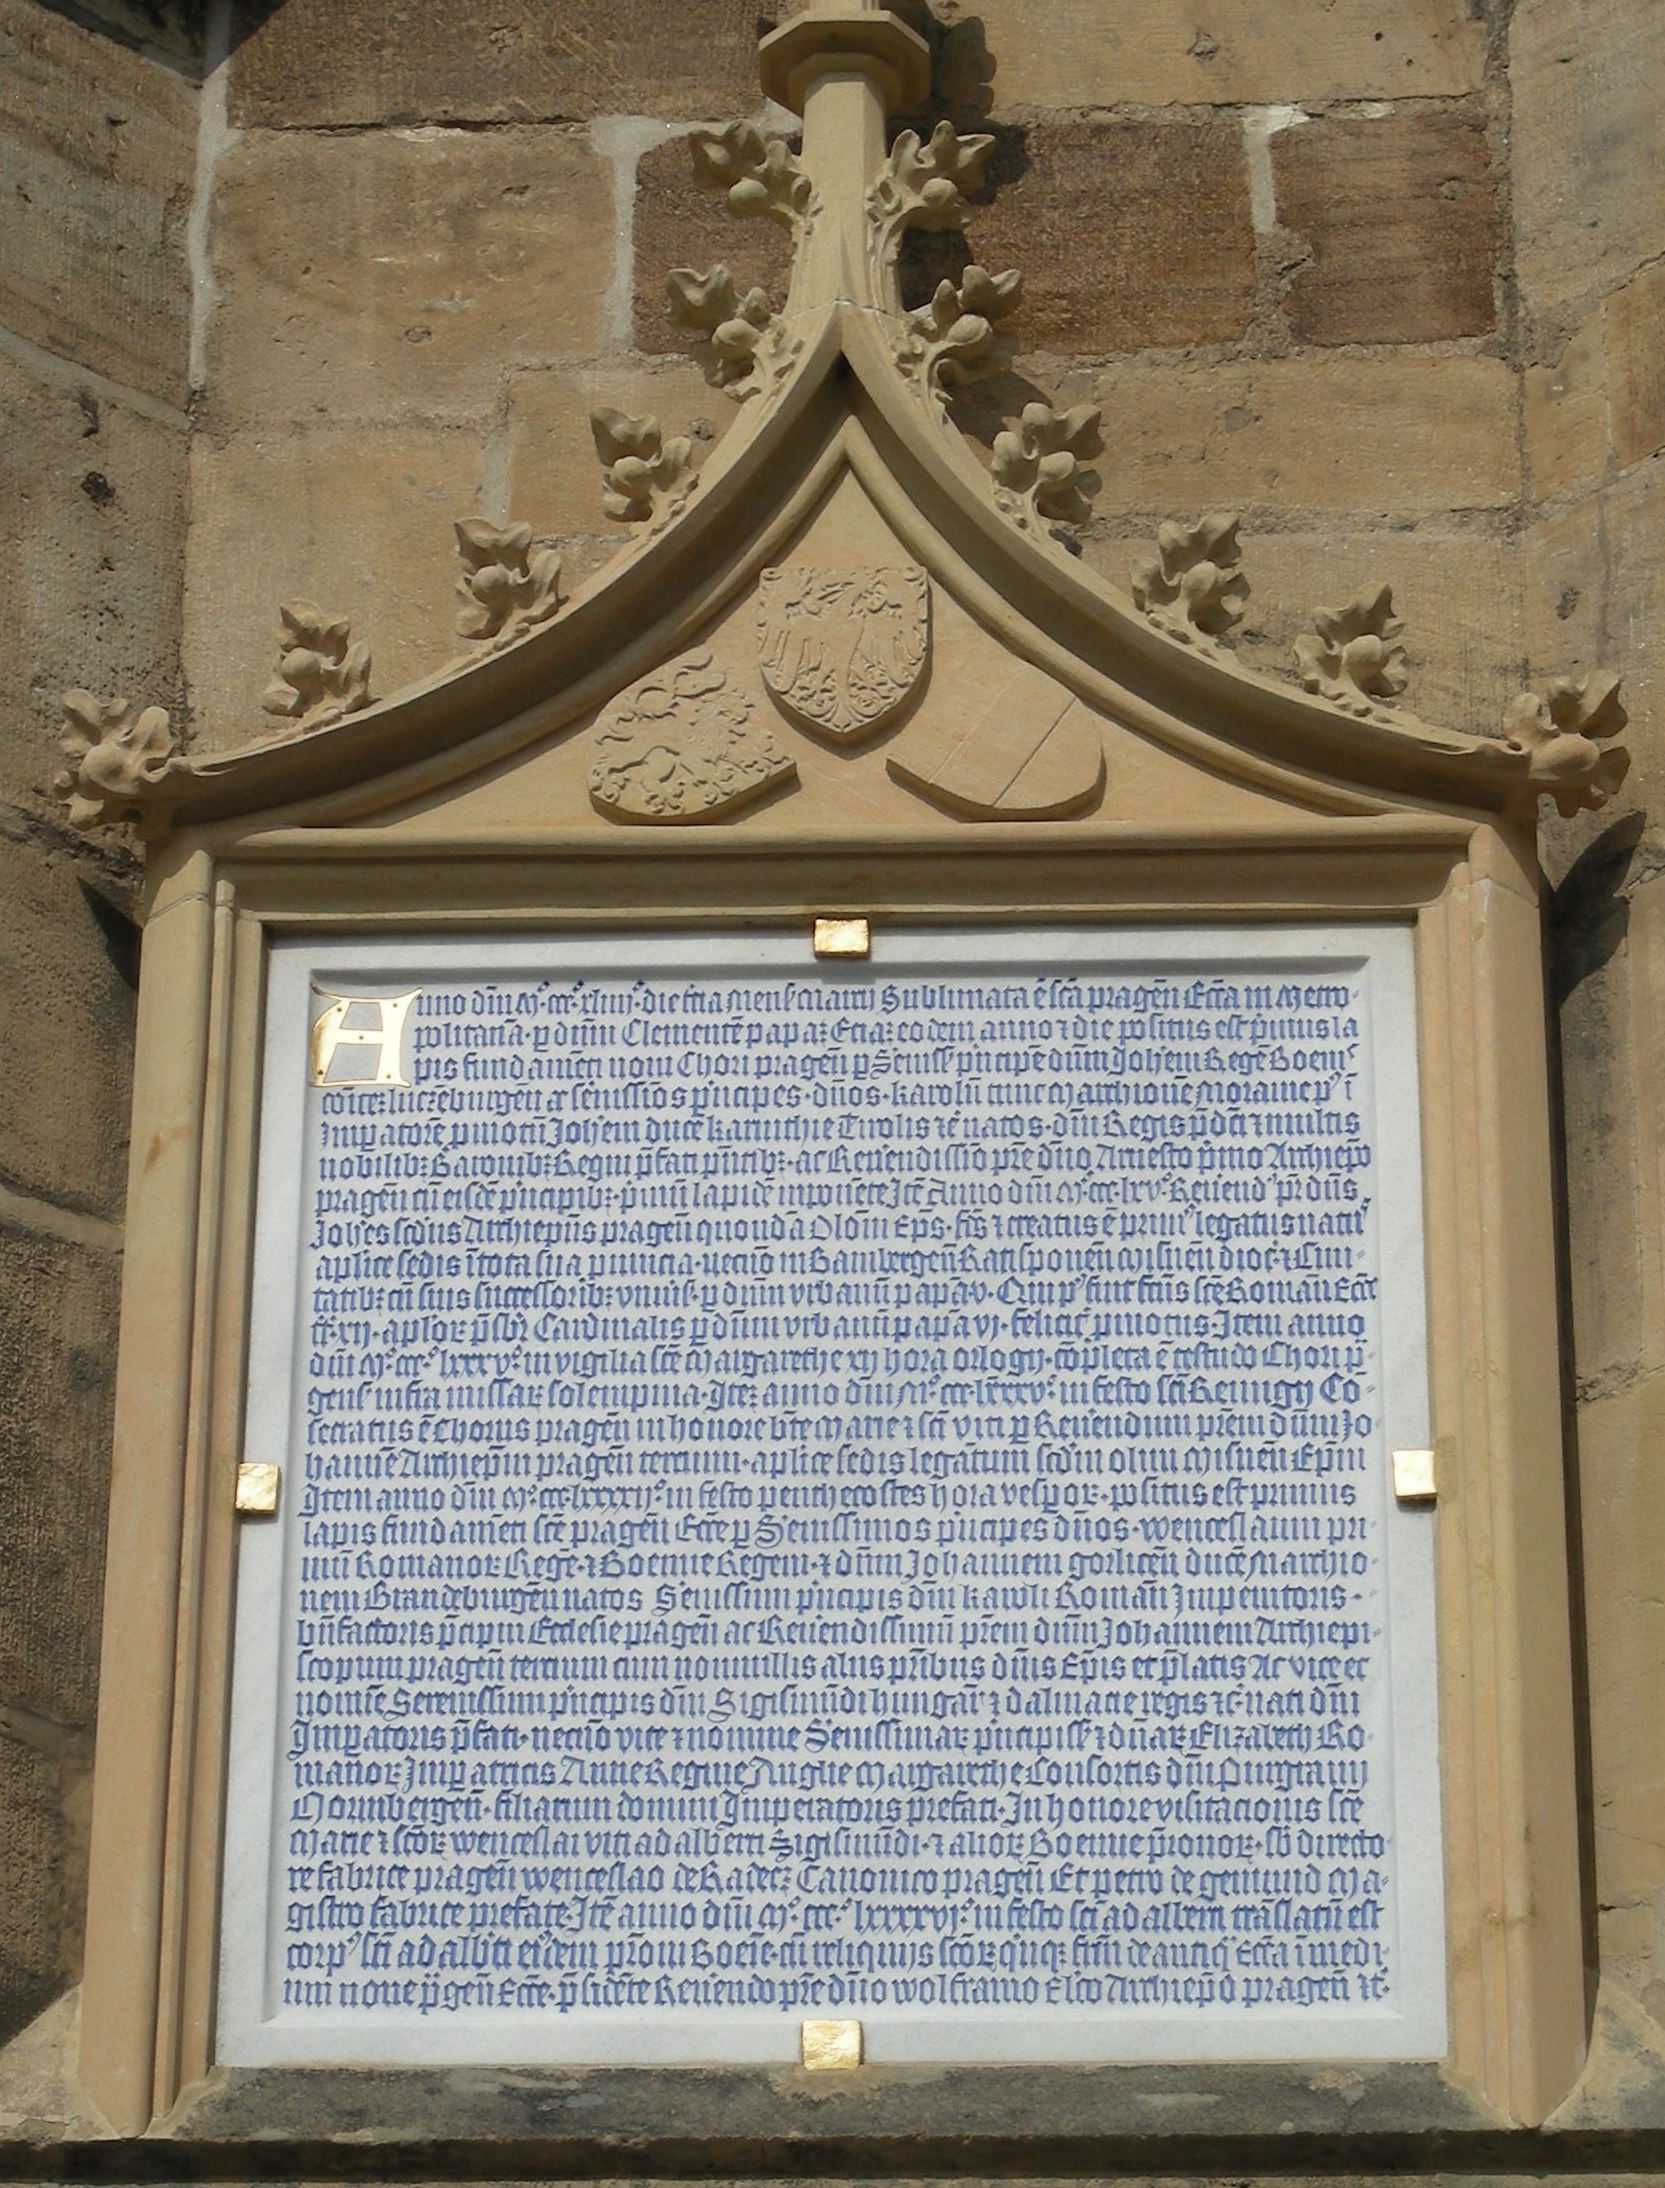 Anno dñi Mº·cccº·xliiijº·die ſc̄ia Menſ' Marcij Sublimata ē ſc̄a pragēn Ecc̄a in Metro-
politanā·ꝑ dñm Clementē papaꝫ Eciaꝫ eodem anno ⁊ die poſitus eſt p̓mus la
pis fundamēti noui Chori pragēn ꝑ Sēniſſ' p̓ncipē dñm Joh̄em Regē Boem̄
cōiteꝫ luczēburgēn ac ſēniſſīos p̓ncipes·dn̄os·karolū tunc Marchionē Morauie pꝰ ī
Imꝑatorē ꝓmotū Joh̄em ducē karinthie Tirolis ⁊c̄ natos·dñi Regis p̄dc̄i ⁊ multis
nobilibꝫ Baronibꝫ Regni p̄fati p̄ntibꝫ·ac Reuendiſſīo pr̄e dn̄o Arneſto p̓mo Archiep̄o
pragēn cū eiſdē p̓ncipibꝫ·p̓mū lapidē inponēte Itē Anno dñi Mº·ccc·lxvº·Reuend' pr̄ dn̄s
Joh̄es ſcd̄us Archiep̄us pragēn quondā Olom̄ Ep̄s·fc̄s ⁊ creatus ē p̓muꝰ legatus natꝰ
aplice ſedis ī tota ſua ꝓuincia·necnō in Bambergēn Ratiſponēn Miſnēn dioc̄·⁊ Ciui-
tatibꝫ cū ſuis ſucceſſoribꝫ vniuſ'·ꝑ dñm vrbanū papā·v·Qui pꝰ fuit fc̄us ſc̄e Romāe Ecc̄e
tt·xij·aploꝝ p̄ſbr̄ Cardinalis ꝑ dñm vrbanū papā vj·felicit' ꝓmotus·Item anno
dñi Mº·cccº·lxxxvº·in vigilia ſc̄e Margarethe xij hora orlogij·cōpleta ē teſtudo Chori p̄-
genſ' infra miſſaꝝ ſolempnia·Iteꝫ anno dñi Mº·ccc·lxxxvº·in feſto ſc̄i Remigij Cō-
ſecratus ē Chorus pragēn in honore bt̄e Marie ⁊ ſc̄i viti ꝑ Reuendum pr̄em dñm Jo
hannē Archiep̄m pragēn tercium·aplice ſedis legātum ſcd̄m olim Miſnēn Ep̄m
Item anno dñi Mº·ccc·lxxxxijº·in feſto penthecoſtes hora veſꝑoꝝ·poſitus eſt primus
lapis fundamēti ſc̄e pragēn Ecc̄e ꝑ Sēniſſimos p̓ncipes dn̄os·wenceſlaum pri-
mū Romanoꝝ Regē·⁊ Boemie Regem·⁊ dñm Johannem gorlicēn ducē Marchio-
nem Brandēburgēn natos Sēniſſimi p̓ncipis dñi karoli Romāi Imperatoris-
bn̄factoris p̄cipui Eccleſie pragēn ac Reuendiſſimū pr̄em dñm Johannem Archiepi-
ſcopum pragēn tercium cum nonnullis alijs pr̄ibus dn̄is Ep̄is et p̄latis Ac vice et
nomīe Sereniſſimi p̓ncipis dñi Sigiſmūdi hungar̄ ⁊ dalmacie regis ⁊c̄·nati dñi
Imꝑatoris p̄fati·necnō vice ⁊ nomine Sēniſſimaꝝ p̓ncipiſſ'⁊ dn̄aꝝ Elizabeth Ro-
manoꝝ Imꝑatricis Anne Regine Anglie Margarethe Conſortis dñi Purgrauij
Normbergēn·filiarum domini Imperatoris prefati·In honore viſitacionis ſc̄e
Marie ⁊ ſc̄oꝝ wenceſlai viti adalberti Sigiſmūdi·⁊ alioꝝ Boemie p̄ronoꝝ·ſb̄ directo-
re fabrice pragēn wenceſlao de Radecz Canonico pragēn Et petro de gemund Ma-
giſtro fabrice prefate Itē anno dñi Mº·cccº·lxxxxvjº·in feſto ſc̄i adalberti trāſlatū eſt
corpꝰ ſc̄i adalb̓ti eiꝰdem pr̄oni Boēie·cū reliquijs ſc̄oꝝ quinqꝫ frm̄ de antiq̄ Ecc̄a ī medi-
um noue p̄gēn Ecc̄e·p̄ſidēte Reuendo pr̄e dn̄o wolframo Elc̄o Archiep̄o pragēn ⁊c̄·